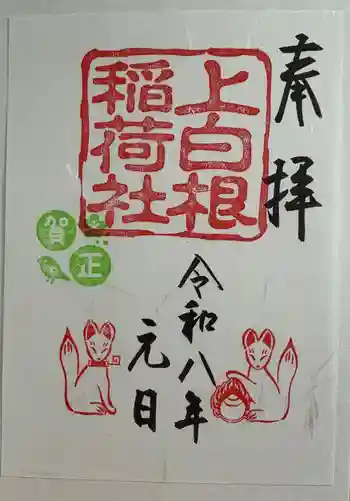 奉拝
上白根
稲荷社
賀正
令和八年
元日